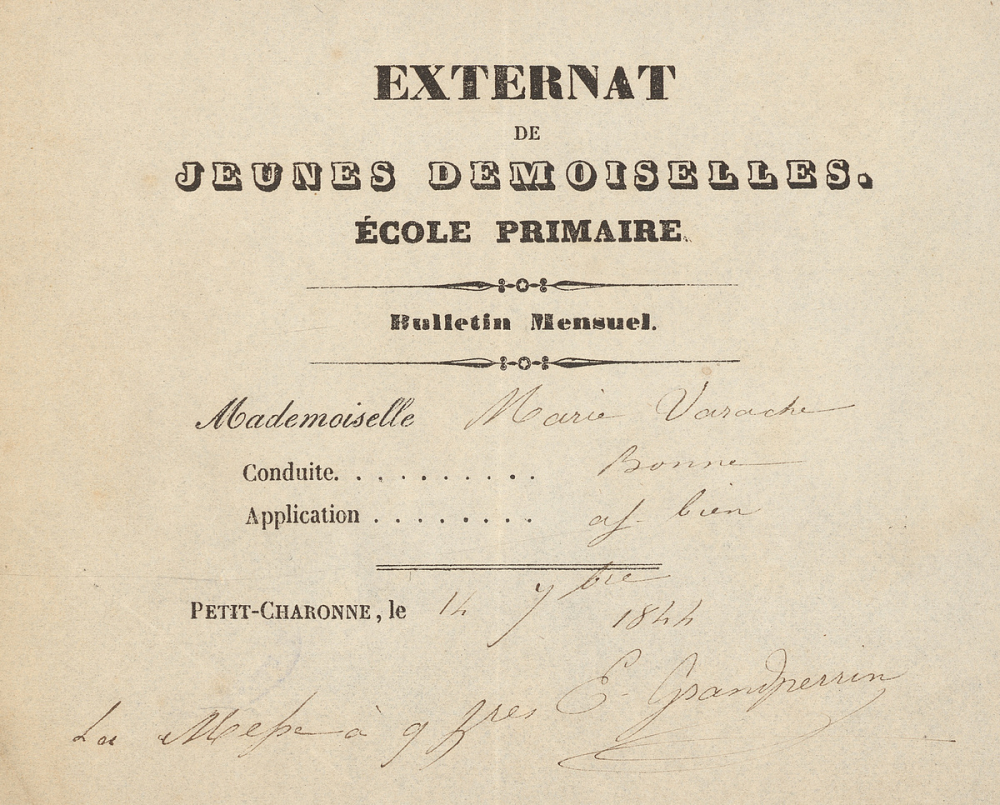 EXTERNAT
DE
JEUNES DEMOISELLES.
ÉCOLE PRIMAIRE.
Bulletin Mensuel.
Mademoiselle Marie Varache
Conduite. . . . . . . . . . Bonne
Application . . . . . . . . aſ. bien
PETIT-CHARONNE, le 14 7bre 1844
E. Grandperrin
La Meſse à 9 hres